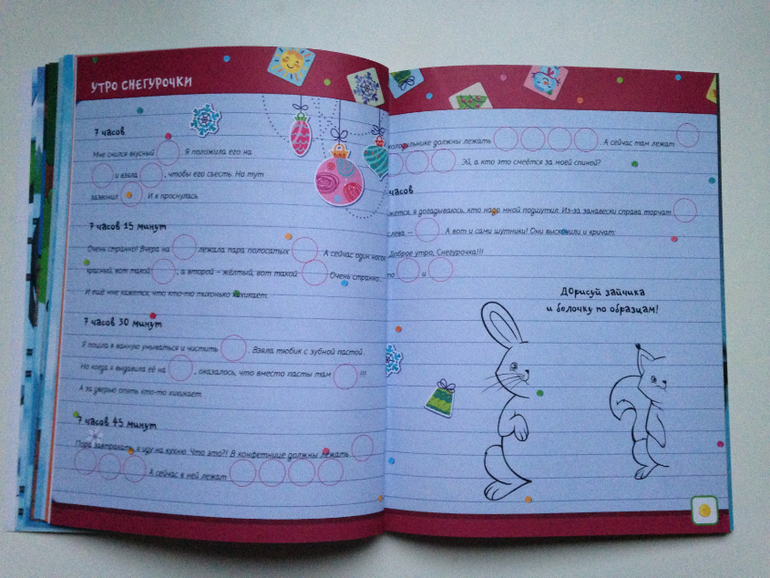 УТРО СНЕГУРОЧКИ
7 часов
Мне снился вкусный . Я положила его на
и взяла , чтобы его съесть. Но тут
зазвонил . И я проснулась
7 часов 15 минут
Очень странно! Вчера на лежала пара полосатых . А сейчас один носок
красный, вот такой , а второй – жёлтый, вот такой . Очень странно...
И ещё мне кажется, что кто-то тихонько хихикает.
7 часов 30 минут
Я пошла в ванную умываться и чистить . Взяла тюбик с зубной пастой.
Но когда я выдавила её на , оказалось, что вместо пасты там !!!
А за дверью опять кто-то хихикает.
7 часов 45 минут
Пора завтракать, я иду на кухню. Что это?! В конфетнице должны лежать
. А сейчас в ней лежат
холодильнике должны лежать . А сейчас там лежат
Эй, а кто это смеётся за моей спиной?
часов
жется, я догадываюсь, кто надо мной подшутил. Из-за занавески справа торчат
слева – . А вот и сами шутники! Они выскочили и кричат:
Доброе утро, Снегурочка!!!
то и
Дорисуй зайчика
и белочку по образцам!